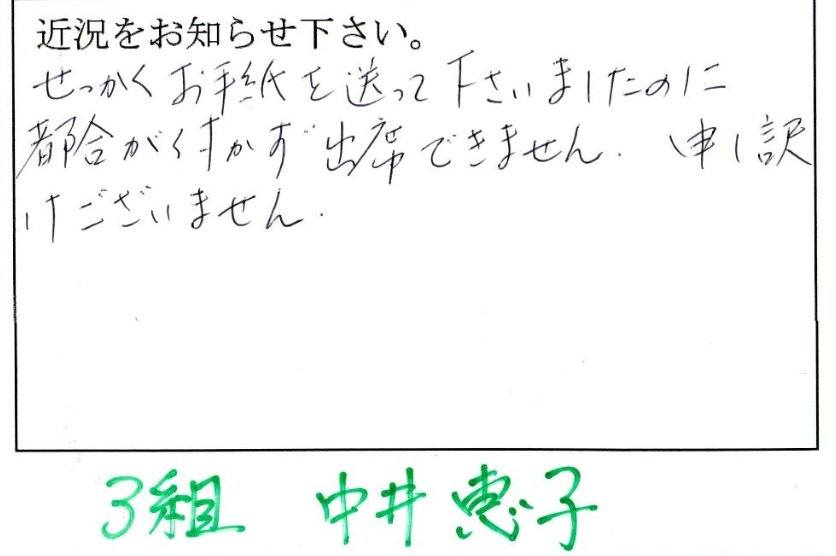 近況をお知らせ下さい。
せっかくお手紙を送って下さいましたのに
都合がつかず出席できません. 申し訳
けございません.
3組 中井恵子